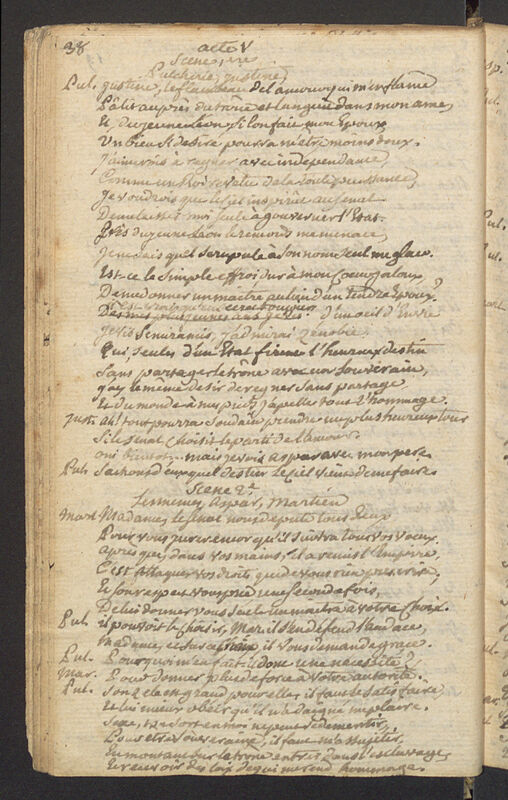 38
acte V
Scene, 1re
Pulcherie, justine,
Pul. justine, le flambeau de l'amour qui m'enflâme
Pâlit auprès du trône et languit dans mon ame,
Et du jeune Léon, si l'on fait mon Epoux
Un bien si désiré pourra m'être moins doux.
j'aimerois à regner avec independance,
Comme un Roi revetu de la toute puissance,
Je voudrois que le ciel inspirât au senat
De me laisser moi seule à gouverner l'Etat.
Près du jeune Léon le remords me menace,
Je ne sais quel scrupule à son nom seul me glace.
Est-ce le simple effroi dur à mon Coeur jaloux
De me donner un maitre au lieu d'un tendre Epoux?
d'un oeil d'Envie
Je vis Semiramis, j'admirai Zenobie
Qui, seules d'un Etat firent l'heureux destin
Sans partager le trône avec un souverain,
j'ay le même desir de regner sans partage
Et du monde à mes pieds j'apelle tous l'hommage.
Just. Ah! tout pourra soudain prendre un plus heureux tour
Si le Senat choisit le parti de l'amour.
mais je vois aspar avec mon pere
Pul. Sachons d'eux quel destin le ciel vient de me faire
Scene 2e
Les memes, Aspar, Martien
Mart. Madame, le senat nous depute tous deux
Pour vous jurer encor qu'il suivra tous vos voeux.
Après que, dans vos mains, il a remis l'Empire,
C'est attaquer vos droits que de vous rien prescrire,
Et son respect vous prie une seconde fois,
De lui donner vous seule un maitre à votre Choix.
Pul. il pouvoit le choisir, Mar. il s'en defend l'audace,
Madame, et sur ce point il vous demande grace.
Pul. Pourquoi m'en fait-il donc une necessité?
Mar. Pour donner plus de force à votre autorité.
Pul. Son zele est grand pour elle, il faut le satisfaire,
Et lui mieux obéir qu'il n'a daigné me plaire.
Sexe, ton sort en moi ne peut se dementir,
Pour être souveraine, il faut m'assujettir,
En montant sur le trône entrer dans l'esclavage,
Et recevoir des loix de qui me rend hommage.